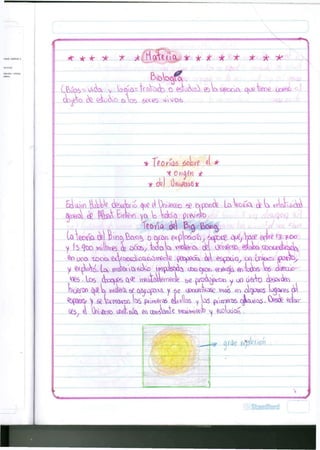 * * * * * * Materia * * * * * * *
Biología
(Bios= vida y logía= tratado o estudio) es la ciencia que tiene como
objeto de estudio a los seres vivos.
* Teorías sobre el *
* origen *
* del Universo *
Edwin Hubble descubrió que el Universo se expande. La teoría de la relatividad
general de Albert Einstein ya lo había previsto.
Teoría del Big Bang
La teoría del Bing Bang o gran explosión, supone que, hace entre 12.000
y 15.000 millones de años, toda la materia del Universo estaba concentrada
en una zona extraordinariamente pequeña del espacio, un único punto,
y explotó. La materia salió impulsada con gran energía en todas las direccio-
nes. Los choques que inevitablemente se produjeron y un cierto desorden
hicieron que la materia se agrupara y se concentrase más en algunos lugares del
espacio y se formaron las primeras estrellas y las primeras galaxias. Desde enton-
ces, el Universo continúa en constante movimiento y evolución.
gran explosión
Standford